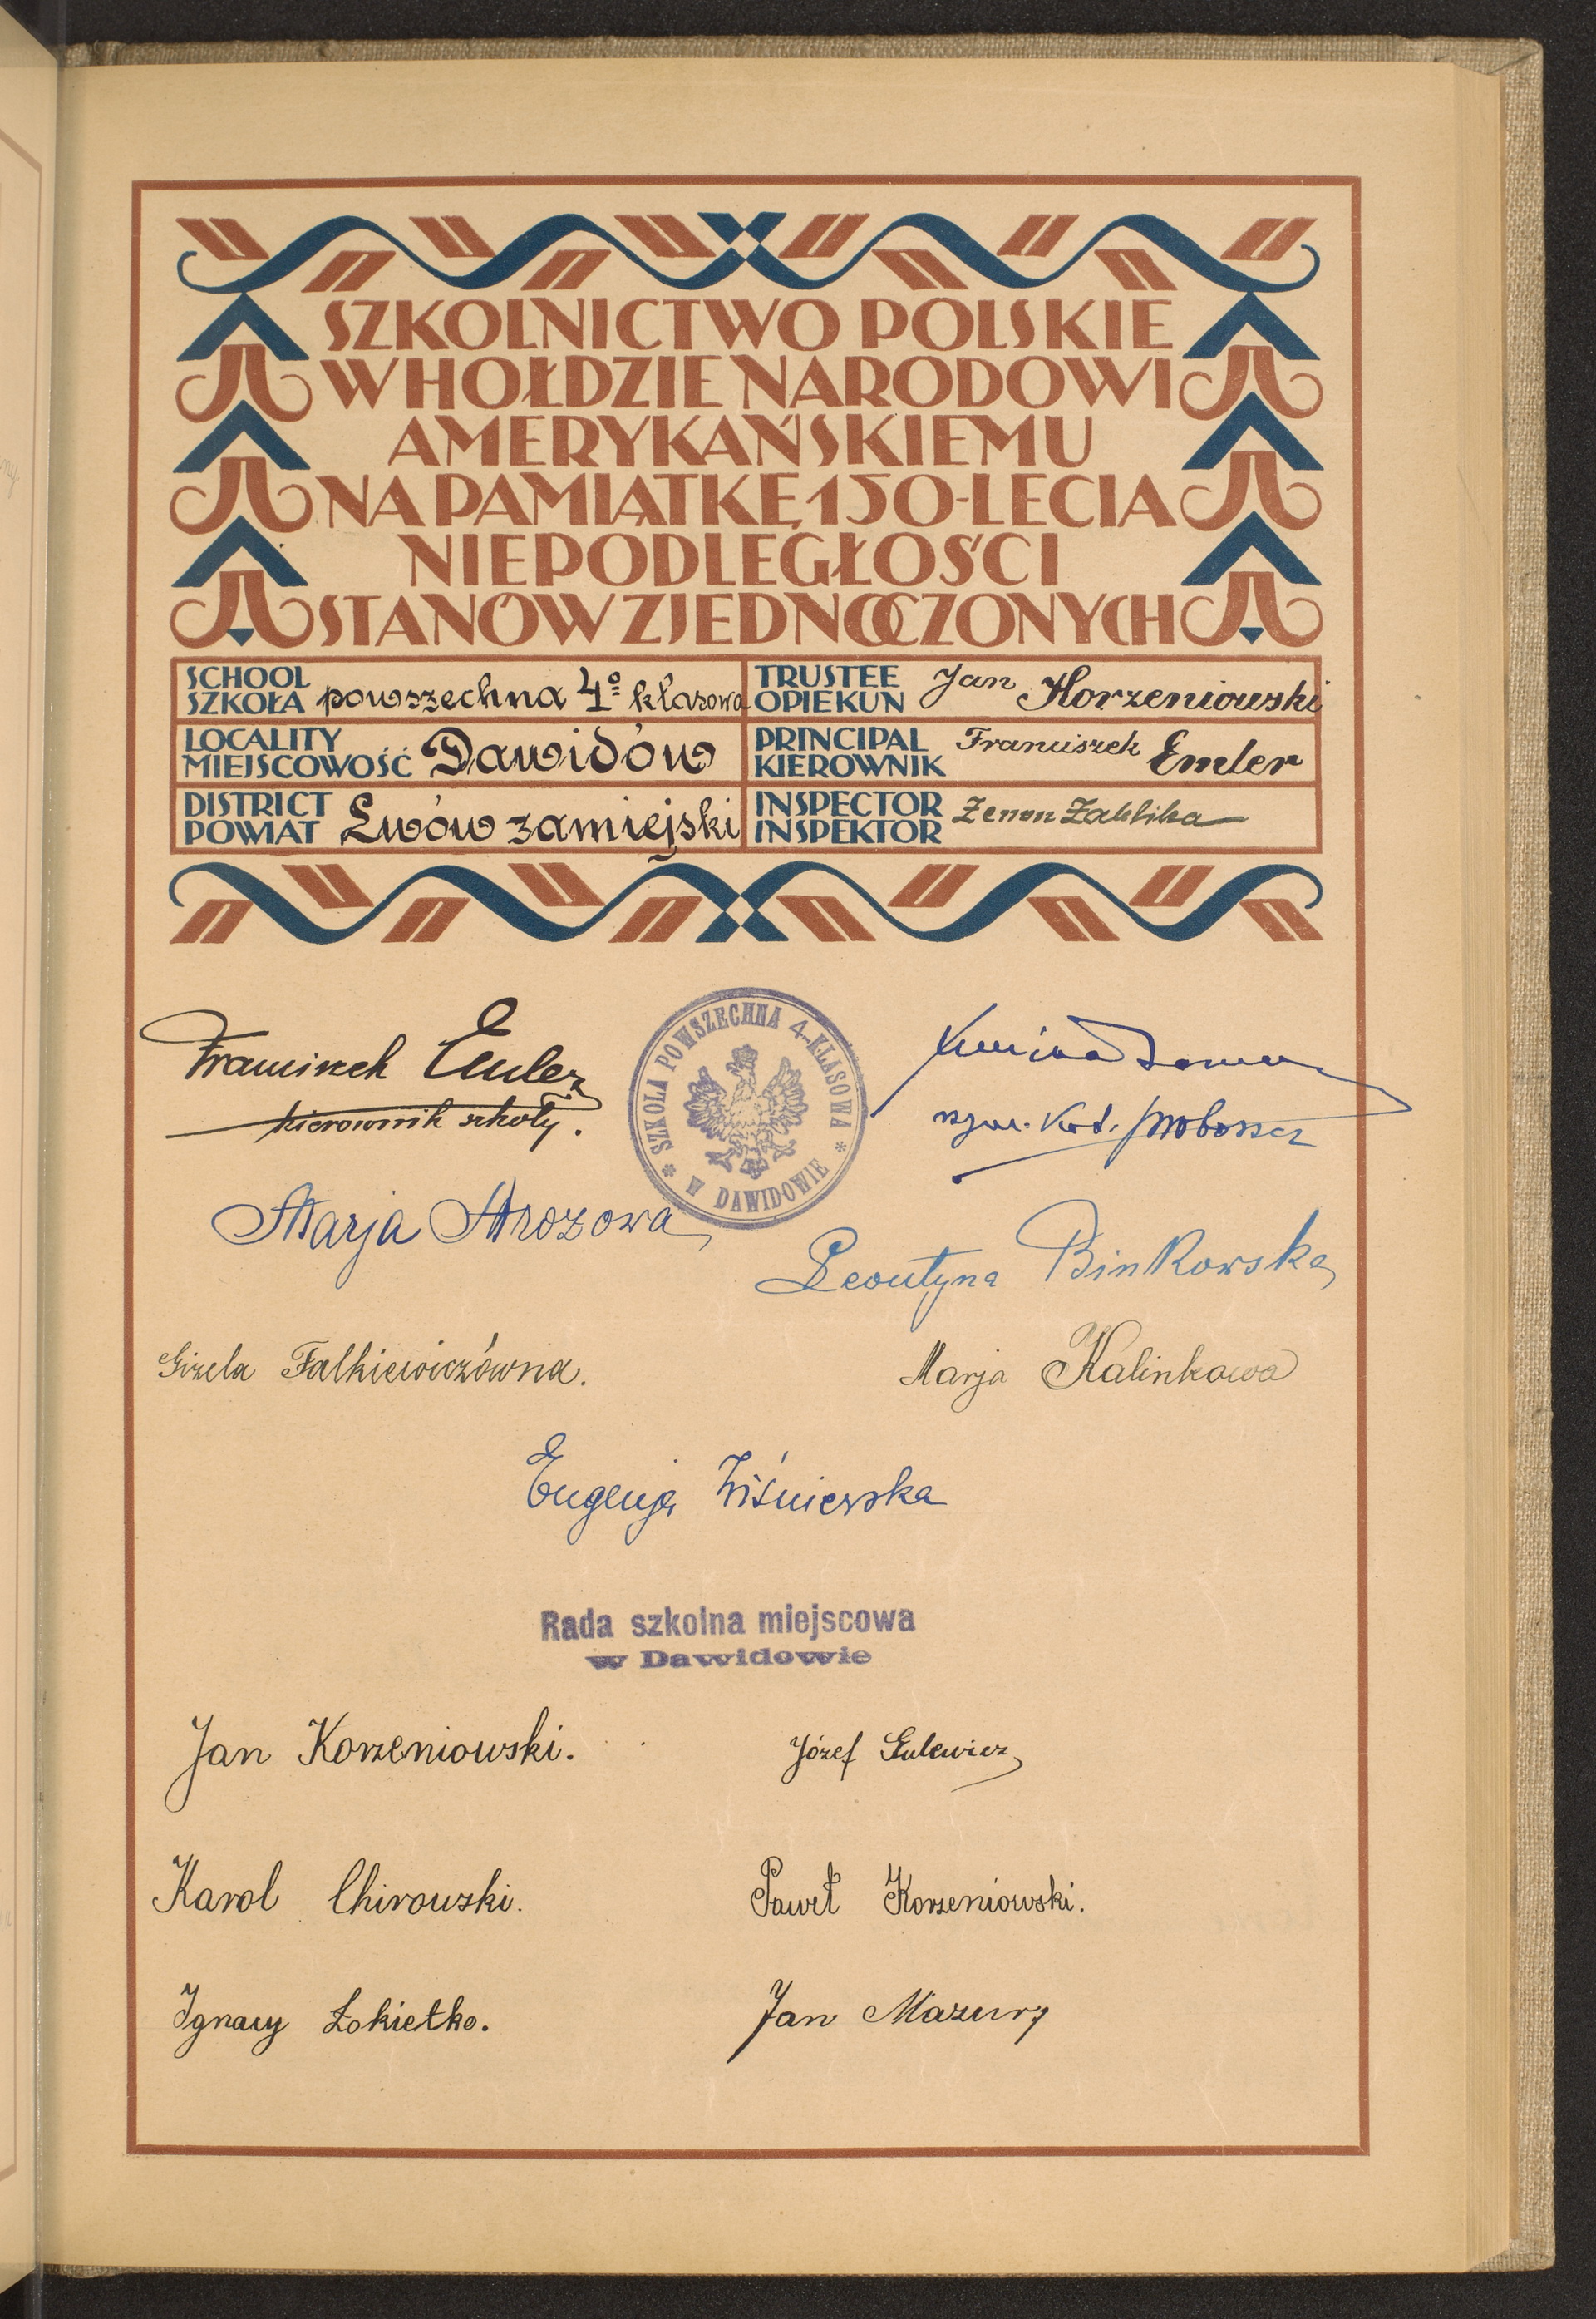 SZKOLNICTWO POLSKIE
W HOŁDZIE NARODOWI
AMERYKAŃSKIEMU
NA PAMIĄTKĘ 150-LECIA
NIEPODLEGŁOŚCI
STANÓW ZJEDNOCZONYCH
SCHOOL
SZKOŁA powszechna 4º klasowa
TRUSTEE
OPIEKUN Jan Korzeniowski
LOCALITY
MIEJSCOWOŚĆ Dawidów
PRINCIPAL
KIEROWNIK Franciszek Emler
DISTRICT
POWIAT Lwów zamiejski
INSPECTOR
INSPEKTOR Zenon Zaklika
Franciszek Emler
kierownik szkoły.
SZKOLA POWSZECHNA 4-KLASOWA * W DAWIDOWIE *
proboszcz
Marja Mrozowa
Leontyna Binkowska
Gizela Falkiewiczówna.
Marja Kalinkowa
Eugenja Wiśniewska
Rada szkolna miejscowa
w Dawidowie
Jan Korzeniowski.
Józef Gulewicz
Karol Chirowski.
Paweł Korzeniowski.
Ignacy Łokietko.
Jan Mazury